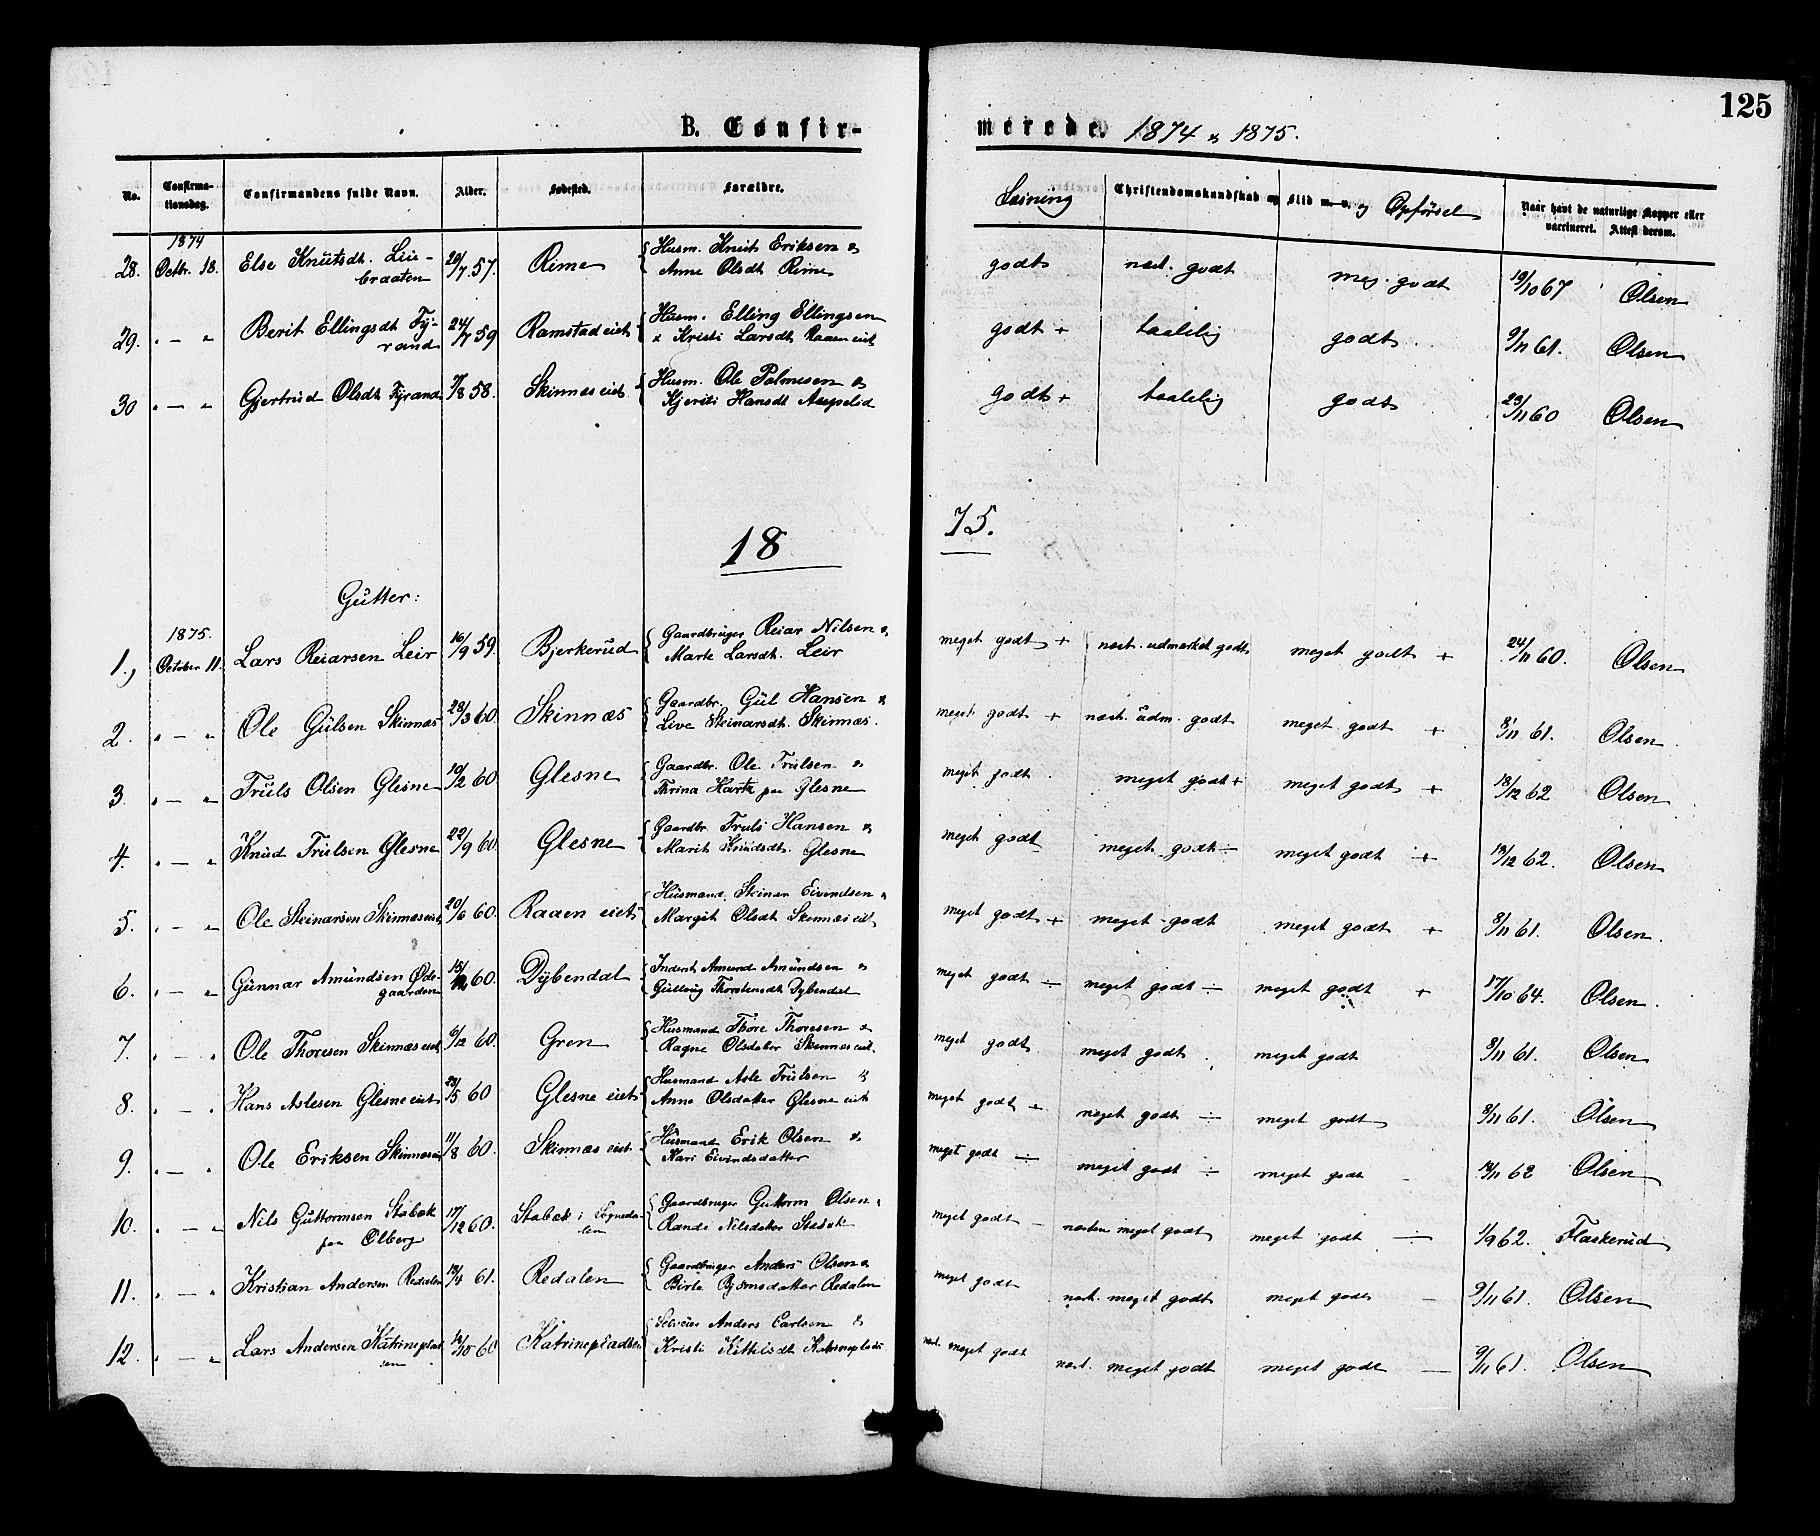 125
B. Confirmerede. 1874 & 1875.
No. Confirmationsdag. Confirmandens fulde Navn. Alder. Fødested. Forældre. Læsning Christendomskundskab og Flid m. v. og Opførsel Naar havt de naturlige Kopper eller vaccineret. Attest derom.
1874
28. Octbr. 18. Else Knutsdt. Liubraaten 20/7 57. Rime Husm. Knut Eriksen & Anne Olsdt Rime godt næst. godt meg. godt 19/10 67 Olsen
29. " — " Berit Ellingsdt Tyrand 24/7 59 Ramstad eiet Husm. Elling Ellingsen & Kristi Larsdt Raaen eiet godt + taalelig godt 9/11 61. Olsen
30 " — " Gjertrud Olsdt Tyrand 7/8 58. Skinnæs eiet Husm. Ole Palmesen & Kjersti Hansdt Aspelid godt + taalelig godt 23/11 60 Olsen
1875.
Gutter:
1875.
1., October 11. Lars Reiarsen Leir 16/9 59. Bjerkerud Gaardbruger Reiar Nilsen & Marte Larsdt. Leir meget godt + næst. udmærket godt meget godt + 24/11 60. Olsen
2. " — " Ole Gulsen Skinnæs 28/3 60. Skinnæs Gaardbr. Gul Hansen & Live Steinarsdt. Skinnæs. meget godt + næst. udm. godt meget godt + 8/11 61. Olsen.
3. " — " Truls Olsen Glesne 10/2 60 Glesne Gaardbr. Ole Trulsen & Thrina Hartz paa Glesne meget godt. meget godt + meget godt + 13/12 62 Olsen
4. " — " Knud Trulsen Glesne 22/9 60. Glesne Gaardbr. Truls Hansen & Marit Knudsdt. Glesne meget godt meget godt ÷ meget godt + 13/12 62. Olsen
5. " — " Ole Steinarsen Skinnæs eiet 20/6 60. Raaen eiet Husmand Steinar Eivindsen & Margit Olsdt Skinnæs eiet meget godt + meget godt meget godt + 8/11 61. Olsen.
6. " — " Gunnar Amundsen Ødegaarden 15/12 60. Dybendal Inderst Amund Amundsen & Gullaug Thorstensdt Dybendal meget godt ÷ meget godt ÷ meget godt + 17/10 64. Olsen.
7. " — " Ole Thoresen Skinnæs eiet 6/12 60. Gren Husmand Thore Thoresen & Ragne Olsdatter Skinnæs eiet. meget godt meget godt. meget godt 8/11 61. Olsen
8. " — " Hans Aslesen Glesne eiet 23/5 60 Glesne eiet Husmand Asle Trulsen & Anne Olsdatter Glesne eiet meget godt + meget godt ÷ meget godt 8/11 61. Olsen
9. " — " Ole Eriksen Skinnæs 11/8 60. Skinnæs eiet Husmand Erik Olsen & Kari Eivindsdatter meget godt ÷ meget godt ÷ meget godt 62 Olsen
10. " — " Nils Guttormsen Stabæk paa Olberg 17/12 60. Stabæk i Sognedalen Gaardbruger Guttorm Olsen & Randi Nilsdatter Stabæk meget godt — næsten meget godt meget godt ÷ 1/9 62. Flaskerud
11. " — " Kristian Andersen Redalen 61. Redalen Gaardbruger Anders Olsen & Birte Bjørnsdatter Redalen meget godt næst. meget godt meget godt — 9/11 61. Olsen
12. " — " Lars Andersen Katrinepladsen 60 Katrinepladsen Selveier Anders Carlsen & Kristi Kittilsdt Katrineplads næst. meget godt næst. meget godt meget godt — 9/11 61. Olsen